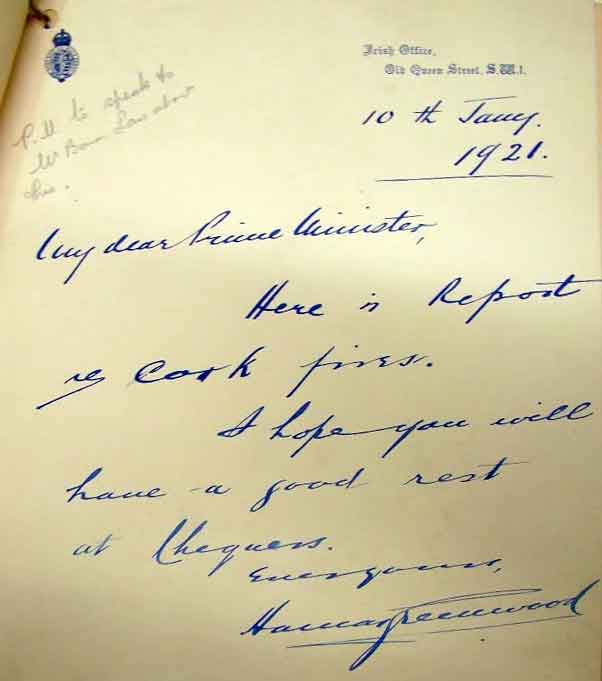 Irish Office,
Old Queen Street, S.W.1.
P.M to speak to
Mr Bonar Law about
this.
10th Jany.
1921.
My dear Prime Minister,
Here is Report
re Cork fires.
I hope you will
have a good rest
at Chequers.
Ever yours,
Hamar Greenwood